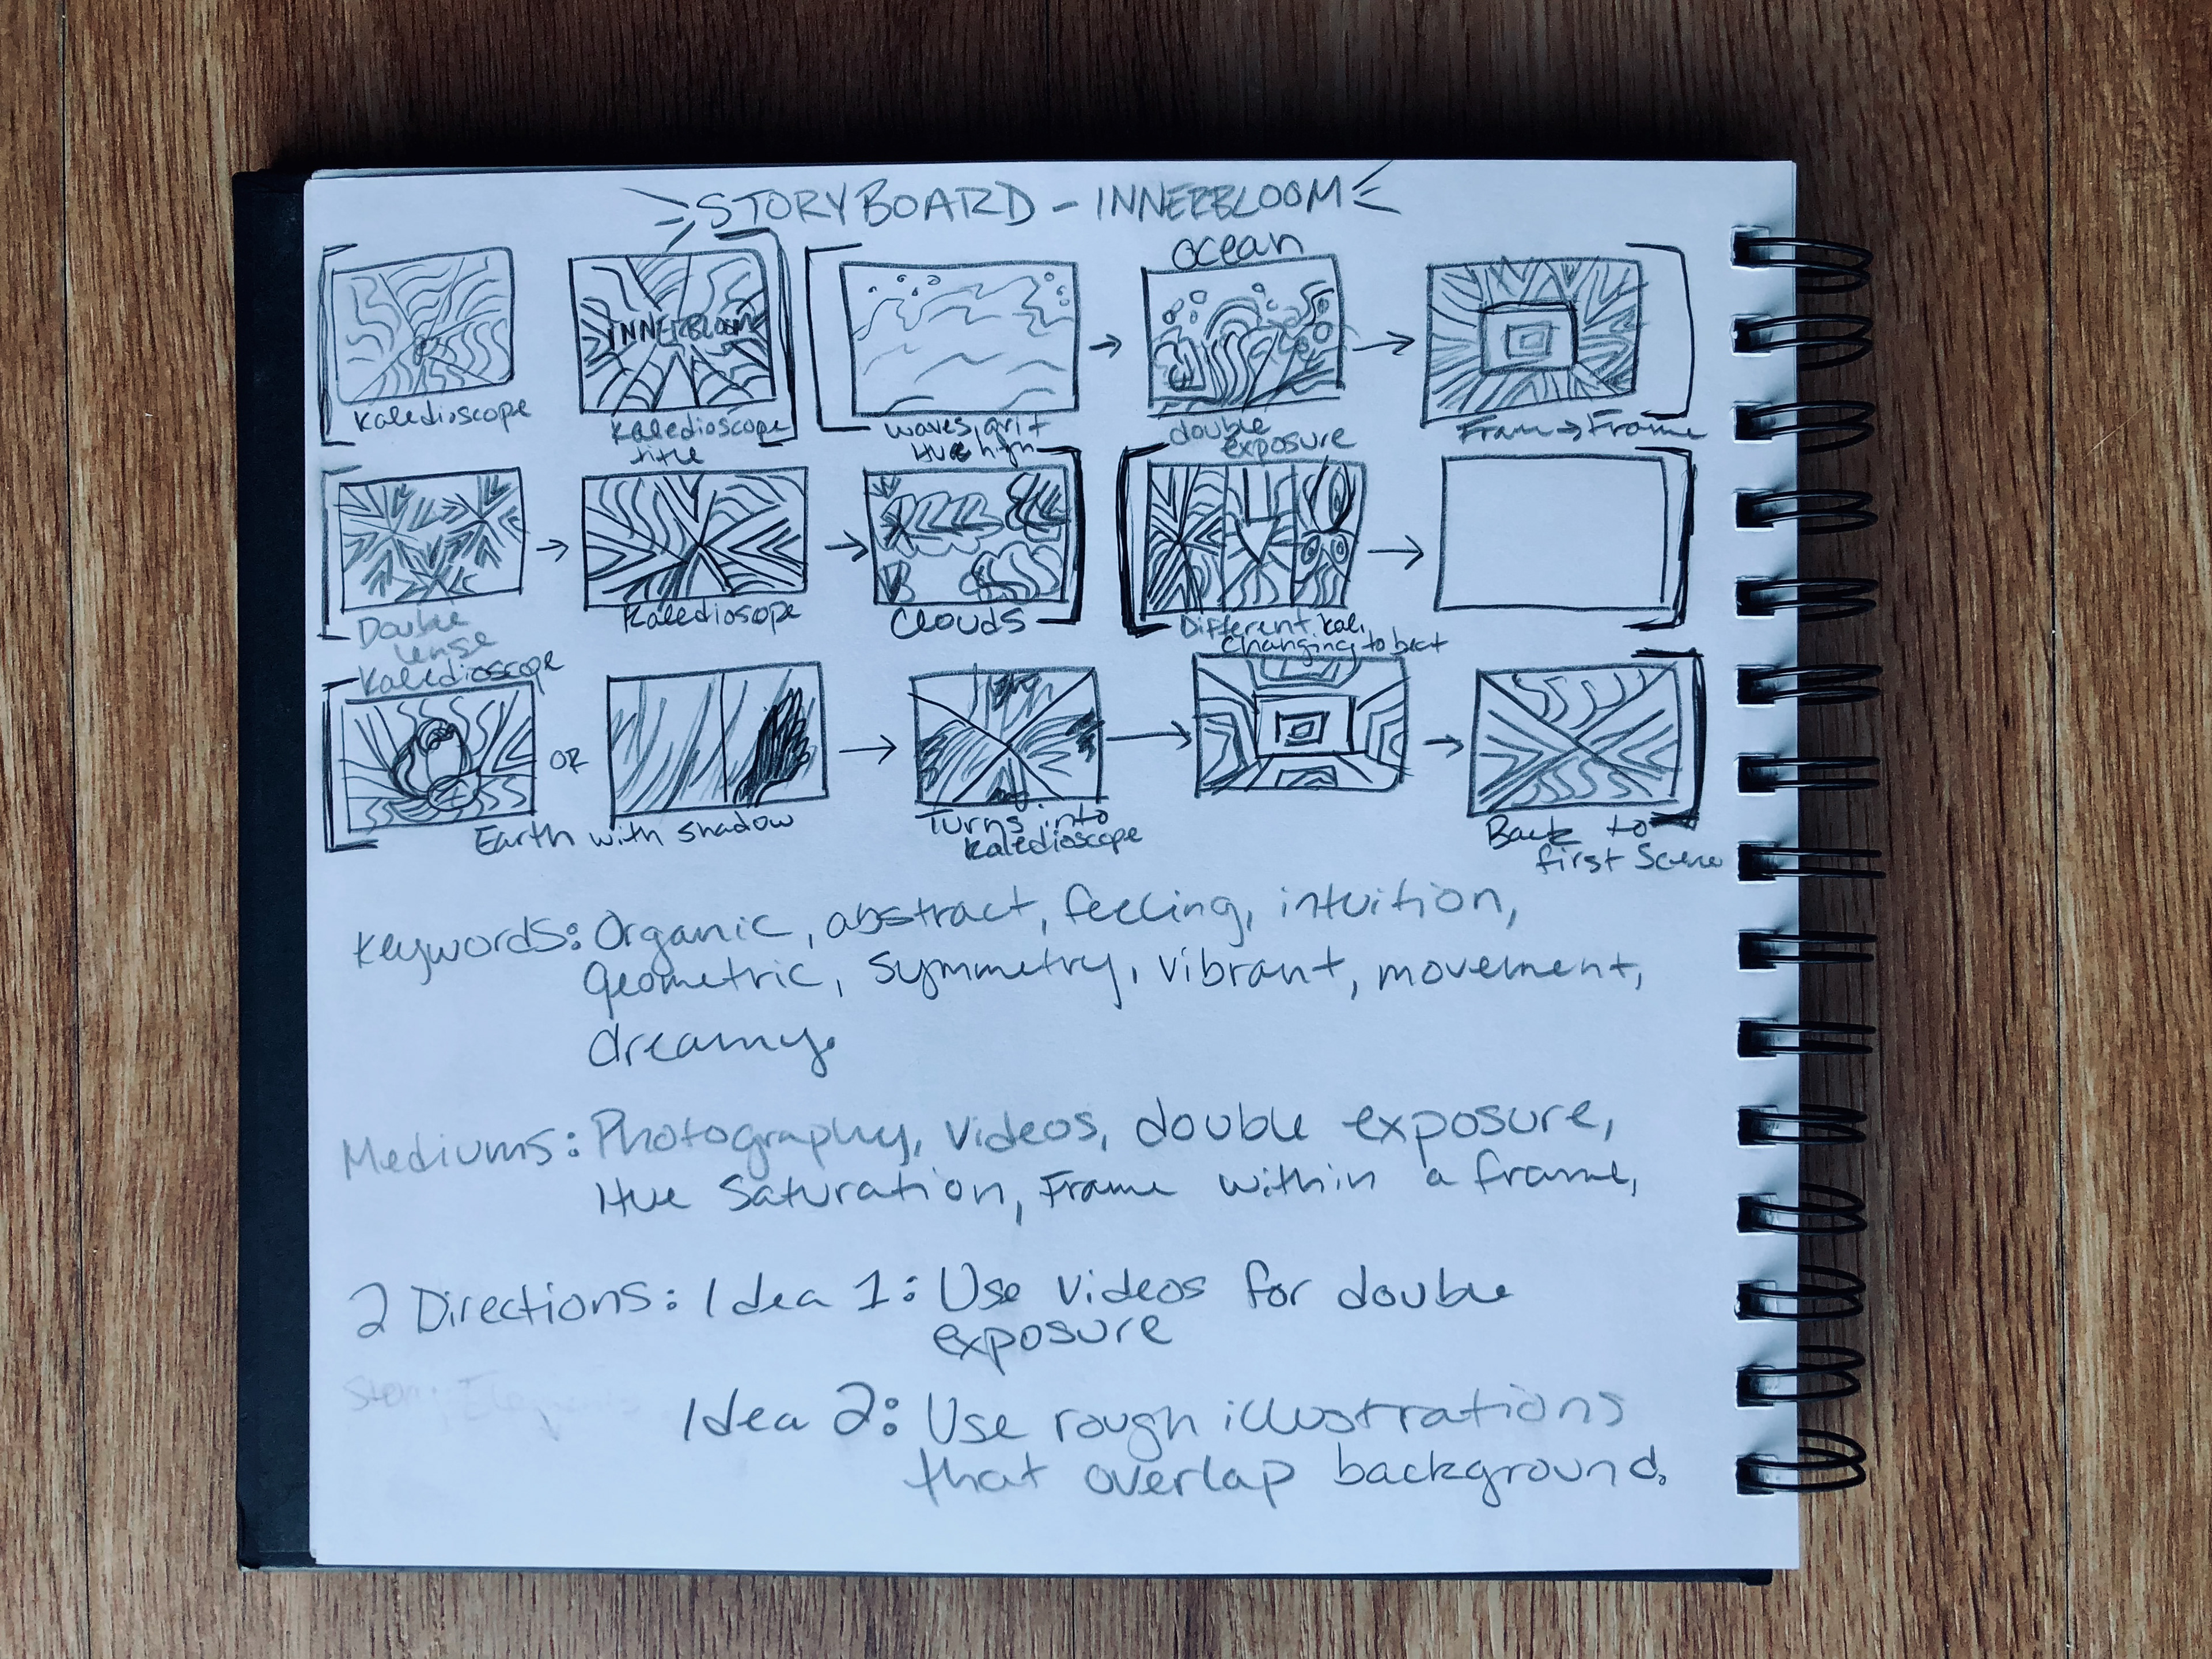 STORYBOARD - INNERBLOOM
ocean
INNERBLOOM
Kaledioscope
Kaledioscope
title
waves, grit
Hue high
double
exposure
Fram → Frame
Double
lense
Kaledioscope
Kaledioscope
Clouds
Different kal.
Changing to beat
OR
Earth with shadow
Turns into
kaledioscope
Back to
first Scene
Keywords: Organic, abstract, feeling, intuition,
geometric, symmetry, vibrant, movement,
dreamy.
Mediums: Photography, Videos, double exposure,
Hue Saturation, Frame within a frame,
2 Directions: Idea 1: Use videos for double
exposure
Story Elements
Idea 2: Use rough illustrations
that overlap background.